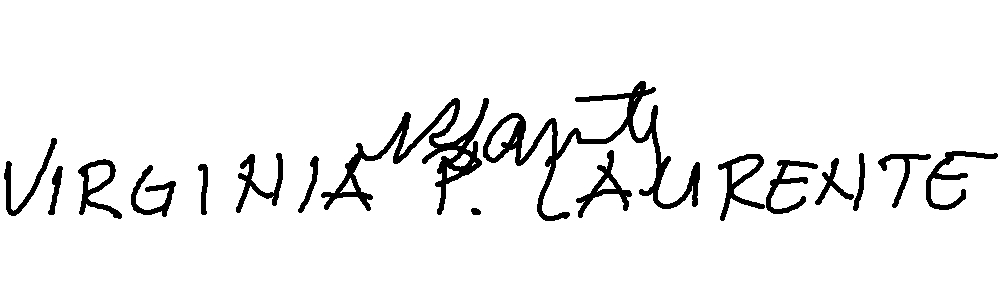 VIRGINIA P. LAURENTE